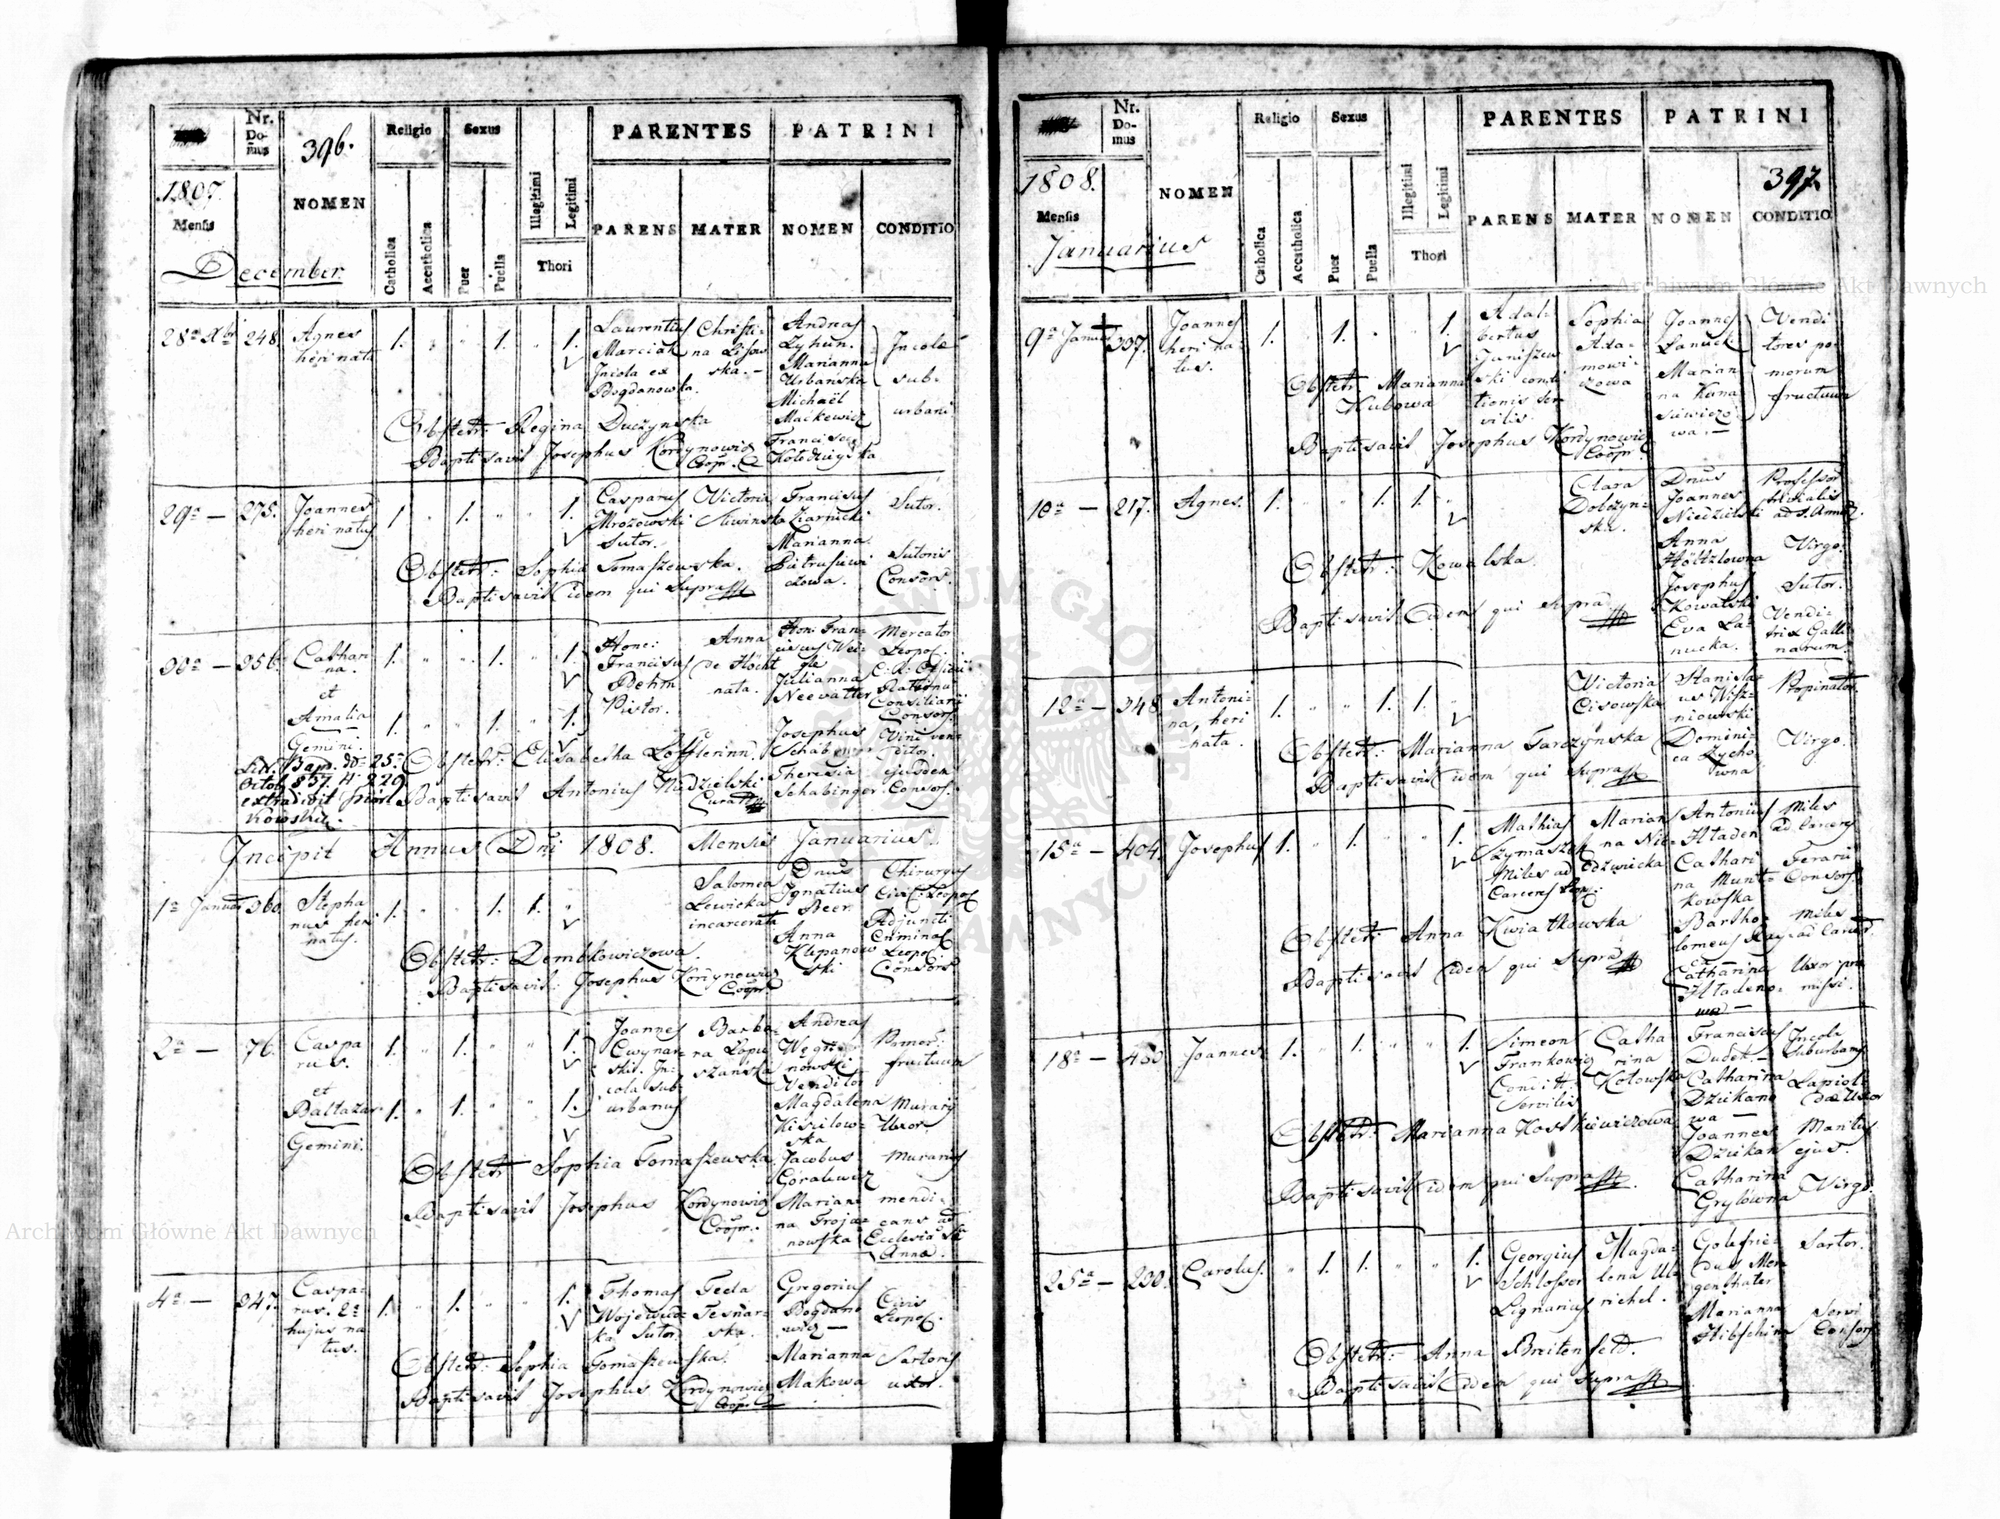 Nr.
Do-
mus
396.
Religio
Sexus
PARENTES
PATRINI
1807.
Mensis
NOMEN
Catholica
Accatholica
Puer
Puella
Illegitimi
Legitimi
Thori
PARENS
MATER
NOMEN
CONDITIO
December.
28ª Xbr
248.
Agnes
heri nata
1.
1.
1.
Laurentius
Marciak
Incola ex
Bogdanowka.
Christi-
na Lisow
ska.-
Andreas
Zyhun.
Marianna
Urbanska
Michaël
Maćkewicz
Francisca
Incolæ
sub-
urbani
Obstetr: Regina Duczynska
Baptisavit Josephus Kordynowicz
Coopr.
29ª —
275.
Joannes
heri natus
1
1.
1.
Casparus
Mrozowski
Sutor.
Victoria
Sliwinska
Franciscus
Ziarnicki
Marianna
Pietrusiewi
czowa.
Sutor.
Sutoris
Consors.
Obstetr: Sophia Tomaszewska.
Baptisavit idem qui Supra
30ª —
356.
Cathari
na.
et
Amalia
Gemini.
1.
1.
1.
1.
1.
1.
Hone:
Franciscus
Behm
Pistor.
Anna
de Höcht
nata.
Hon: Fran-
ciscus Wei-
gle
Julianna
Neewatter
Josephus
Schabinger
Theresia
Schabinger
Mercator
Leopol.
Consiliarii
Consors.
Vini ven-
ditor.
ejusdem
Consors.
Obstetr: Elisabetha Löfflerinn.
Baptisavit Antonius Niedzielski
Curatus
Incipit Annus Dni 1808. Mensis Januarius.
1ª Januar
360.
Stepha
nus heri
natus.
1.
1.
1.
Salomea
Lewicka
incarcerata
Dnus
Ignatius
Beer.
Anna
Klepanow
ski
Chirurgus
Civit: Leopol
Adjuncti
Criminal
Leopol:
Consors
Obstetr: Dembkowiczowa.
Baptisavit: Josephus Kordynowicz
Coopr.
2ª —
76.
Caspa
rus.
et
Baltazar
Gemini.
1.
1.
1.
1.
1.
1.
Joannes
Cwynar-
ski. In-
cola sub-
urbanus
Barba-
ra Lopu
szanska
Andreas
Węgrzy
nowski
Venditor
Magdalena
Kisielow-
ska
Jacobus
Goralewicz
Marian
na Troja-
nowska
Pomor:
fructuum
Murarij
Uxor
Murarius
mendi-
cans ad
Ecclesiã St:
Annæ.
Obstetr Sophia Tomaszewska
Baptisavit Josephus Kordynowicz
Coopr:
4ª —
347.
Caspa-
rus. 2ª
hujus na
tus.
1.
1.
1.
Thomas
Wojewod-
ka Sutor
Tecla
Tesnar-
ska.
Gregorius
Bogdano
wicz —
Marianna
Makowa
Civis
Leopol.
Sartoris
uxor.
Obstetr: Sophia Tomaszewska.
Baptisavit Josephus Kordynowicz
Coopr.
Nr.
Do-
mus
Religio
Sexus
PARENTES
PATRINI
1808.
397.
Mensis
NOMEN
Catholica
Accatholica
Puer
Puella
Illegitimi
Legitimi
Thori
PARENS
MATER
NOMEN
CONDITIO
Januarius
9ª Januar
337.
Joannes
heri na-
tus.
1.
1.
1.
Adal-
bertus
Janiszew
ski condi
tionis ser
vilis.
Sophia
Ada-
mowi-
czowa
Joannes
Lanucki
Marian
na Kuna
siewiczo
wa.—
Vendi
tores po-
morum
fructuum
Obstetr: Marianna
Kubowa
Baptisavit Josephus Kordynowicz
Coopr:
10ª —
217.
Agnes.
1.
1.
1.
Clara
Dobzyn-
ska.
Dnus
Joannes
Niedzielski
Anna
Höltzlowna
Josephus
Kowalski
Eva La-
nucka.
Professor
ad S. Annã.
Virgo.
Sutor.
Vendi-
trix Galli
narum.
Obstetr: Kowalska.
Baptisavit idem qui supra
12ª —
348.
Antoni-
na, heri
nata.
1.
1.
1.
Victoria
Cisowska
Stanisla-
us Wisz-
niowski
Domini-
ca Zycho
wna
Popinator.
Virgo.
Obstetr: Marianna Tarczynska
Baptisavit idem qui Supra
15ª —
404.
Josephus
1.
1.
1.
Mathias
Szymaszek
Miles ad
Carceres Leop:
Marian
na Nie-
dzwiecka
Antonius
Hladen
Cathari
na Munt-
kowska
Bartho-
lomeus
et
Catharina
Hladeno-
wa —
Miles
ad Carceres
Ferarii
Consors.
Miles
ad Carcer.
Uxor præ
missi.
Obstetr: Anna Kwiatkowska
Baptisavit idem qui Supra
18ª —
430.
Joannes
1.
1.
1.
Simeon
Frankowicz
Condit:
Servilis
Catha
rina
Kotowska
Franciscus
Dudek —
Catharina
Dzieкano
wa —
Joannes
Dziekan
Catharina
Grylowna
Incola
Suburbanus
Lapici-
dæ Uxor
Maritus
ejus.
Virgo.
Obstetr: Marianna Hoszkiewiczowa
Baptisavit idem qui Supra
25ª —
230.
Carolus.
1.
1.
1.
Georgius
Schlosser
Lignarius
Magda-
lena Ul-
richel.
Golefrie-
dus Mor
genthater
Marianna
Hibschina
Sartor.
Servi
Consors.
Obstetr:- Anna Breitenfeld.
Baptisavit idem qui supra
Archiwum Główne Akt Dawnych
Archiwum Główne Akt Dawnych
ARCHIWUM GŁÓWNE AKT DAWNYCH